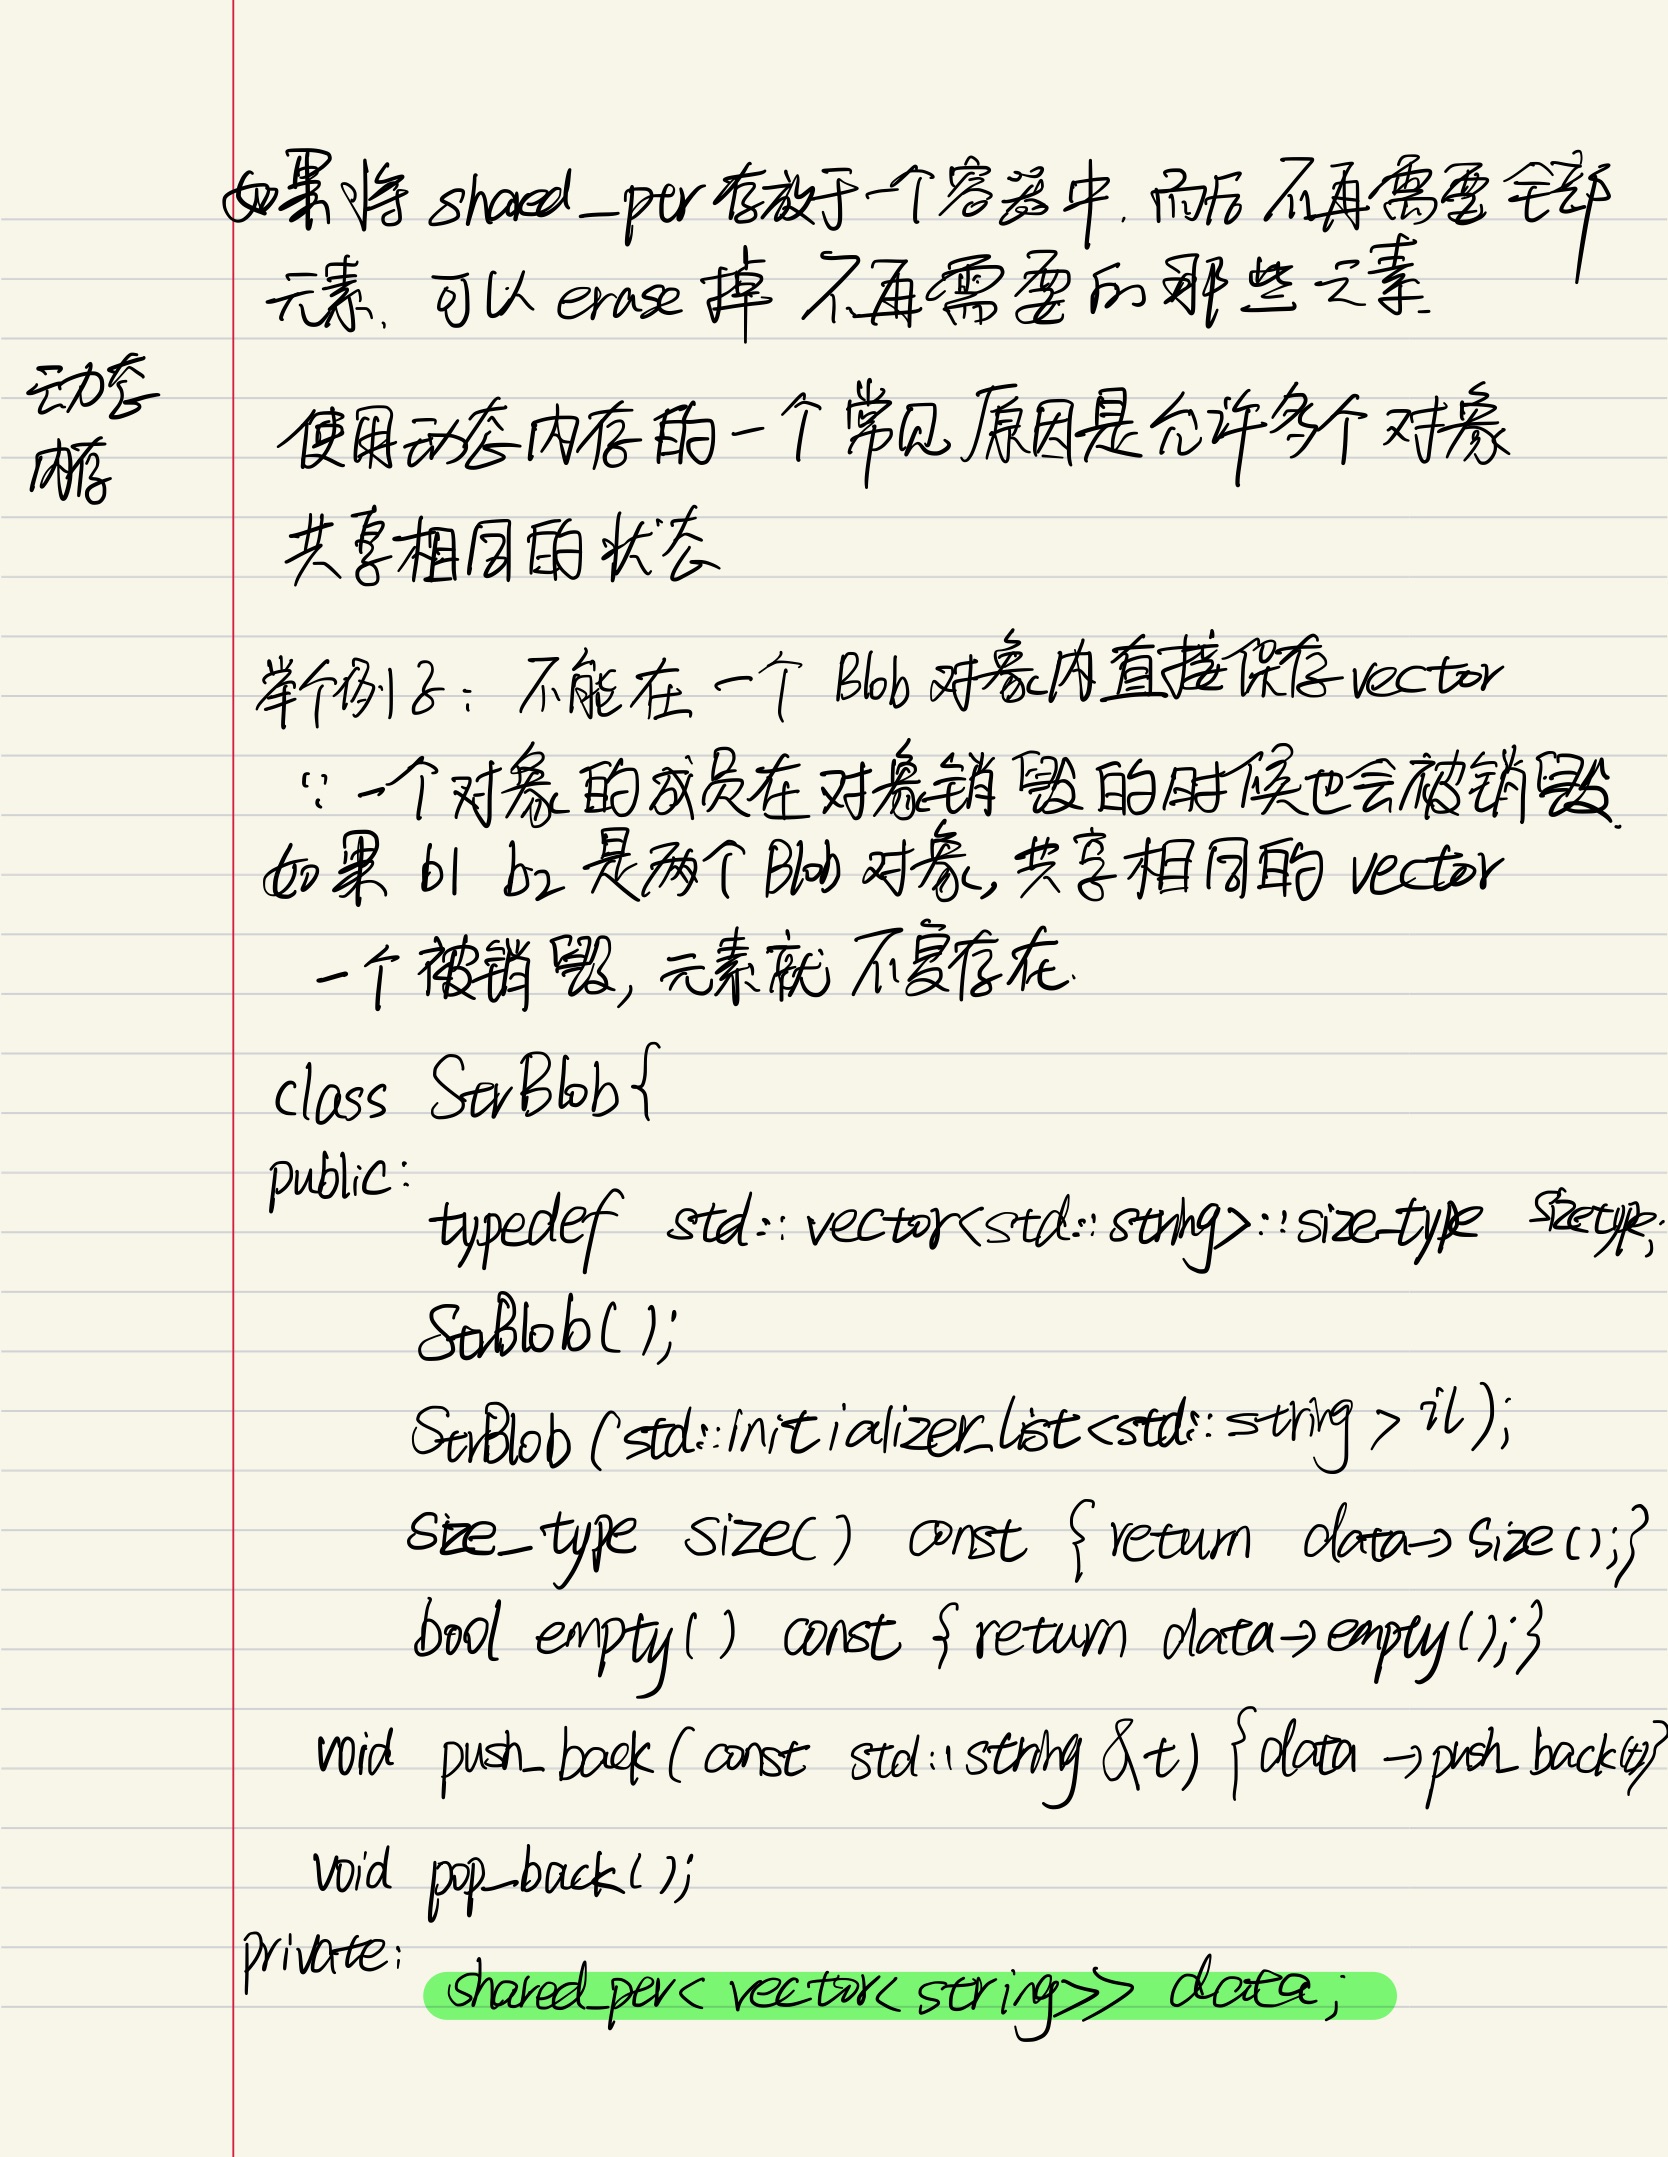 如果将 shared_ptr 存放于一个容器中. 而后不再需要全部
元素、可以 erase 掉 不再需要的那些元素.
动态
内存
使用动态内存的一个常见原因是允许多个对象
共享相同的状态
举个例子: 不能在一个 Blob 对象内直接保存 vector
∵ 一个对象的成员在对象销毁的时候也会被销毁.
如果 b1 b2 是两个 Blob 对象, 共享相同的 vector
一个被销毁, 元素就不复存在.
class StrBlob{
public:
typedef std::vector<std::string>::size_type sizetype;
StrBlob();
StrBlob(std::initializer_list<std::string> il);
size_type size() const {return data->size();}
bool empty() const {return data->empty();}
void push_back(const std::string &t) {data->push_back(t)}
void pop_back();
private:
shared_ptr<vector<string>> data;